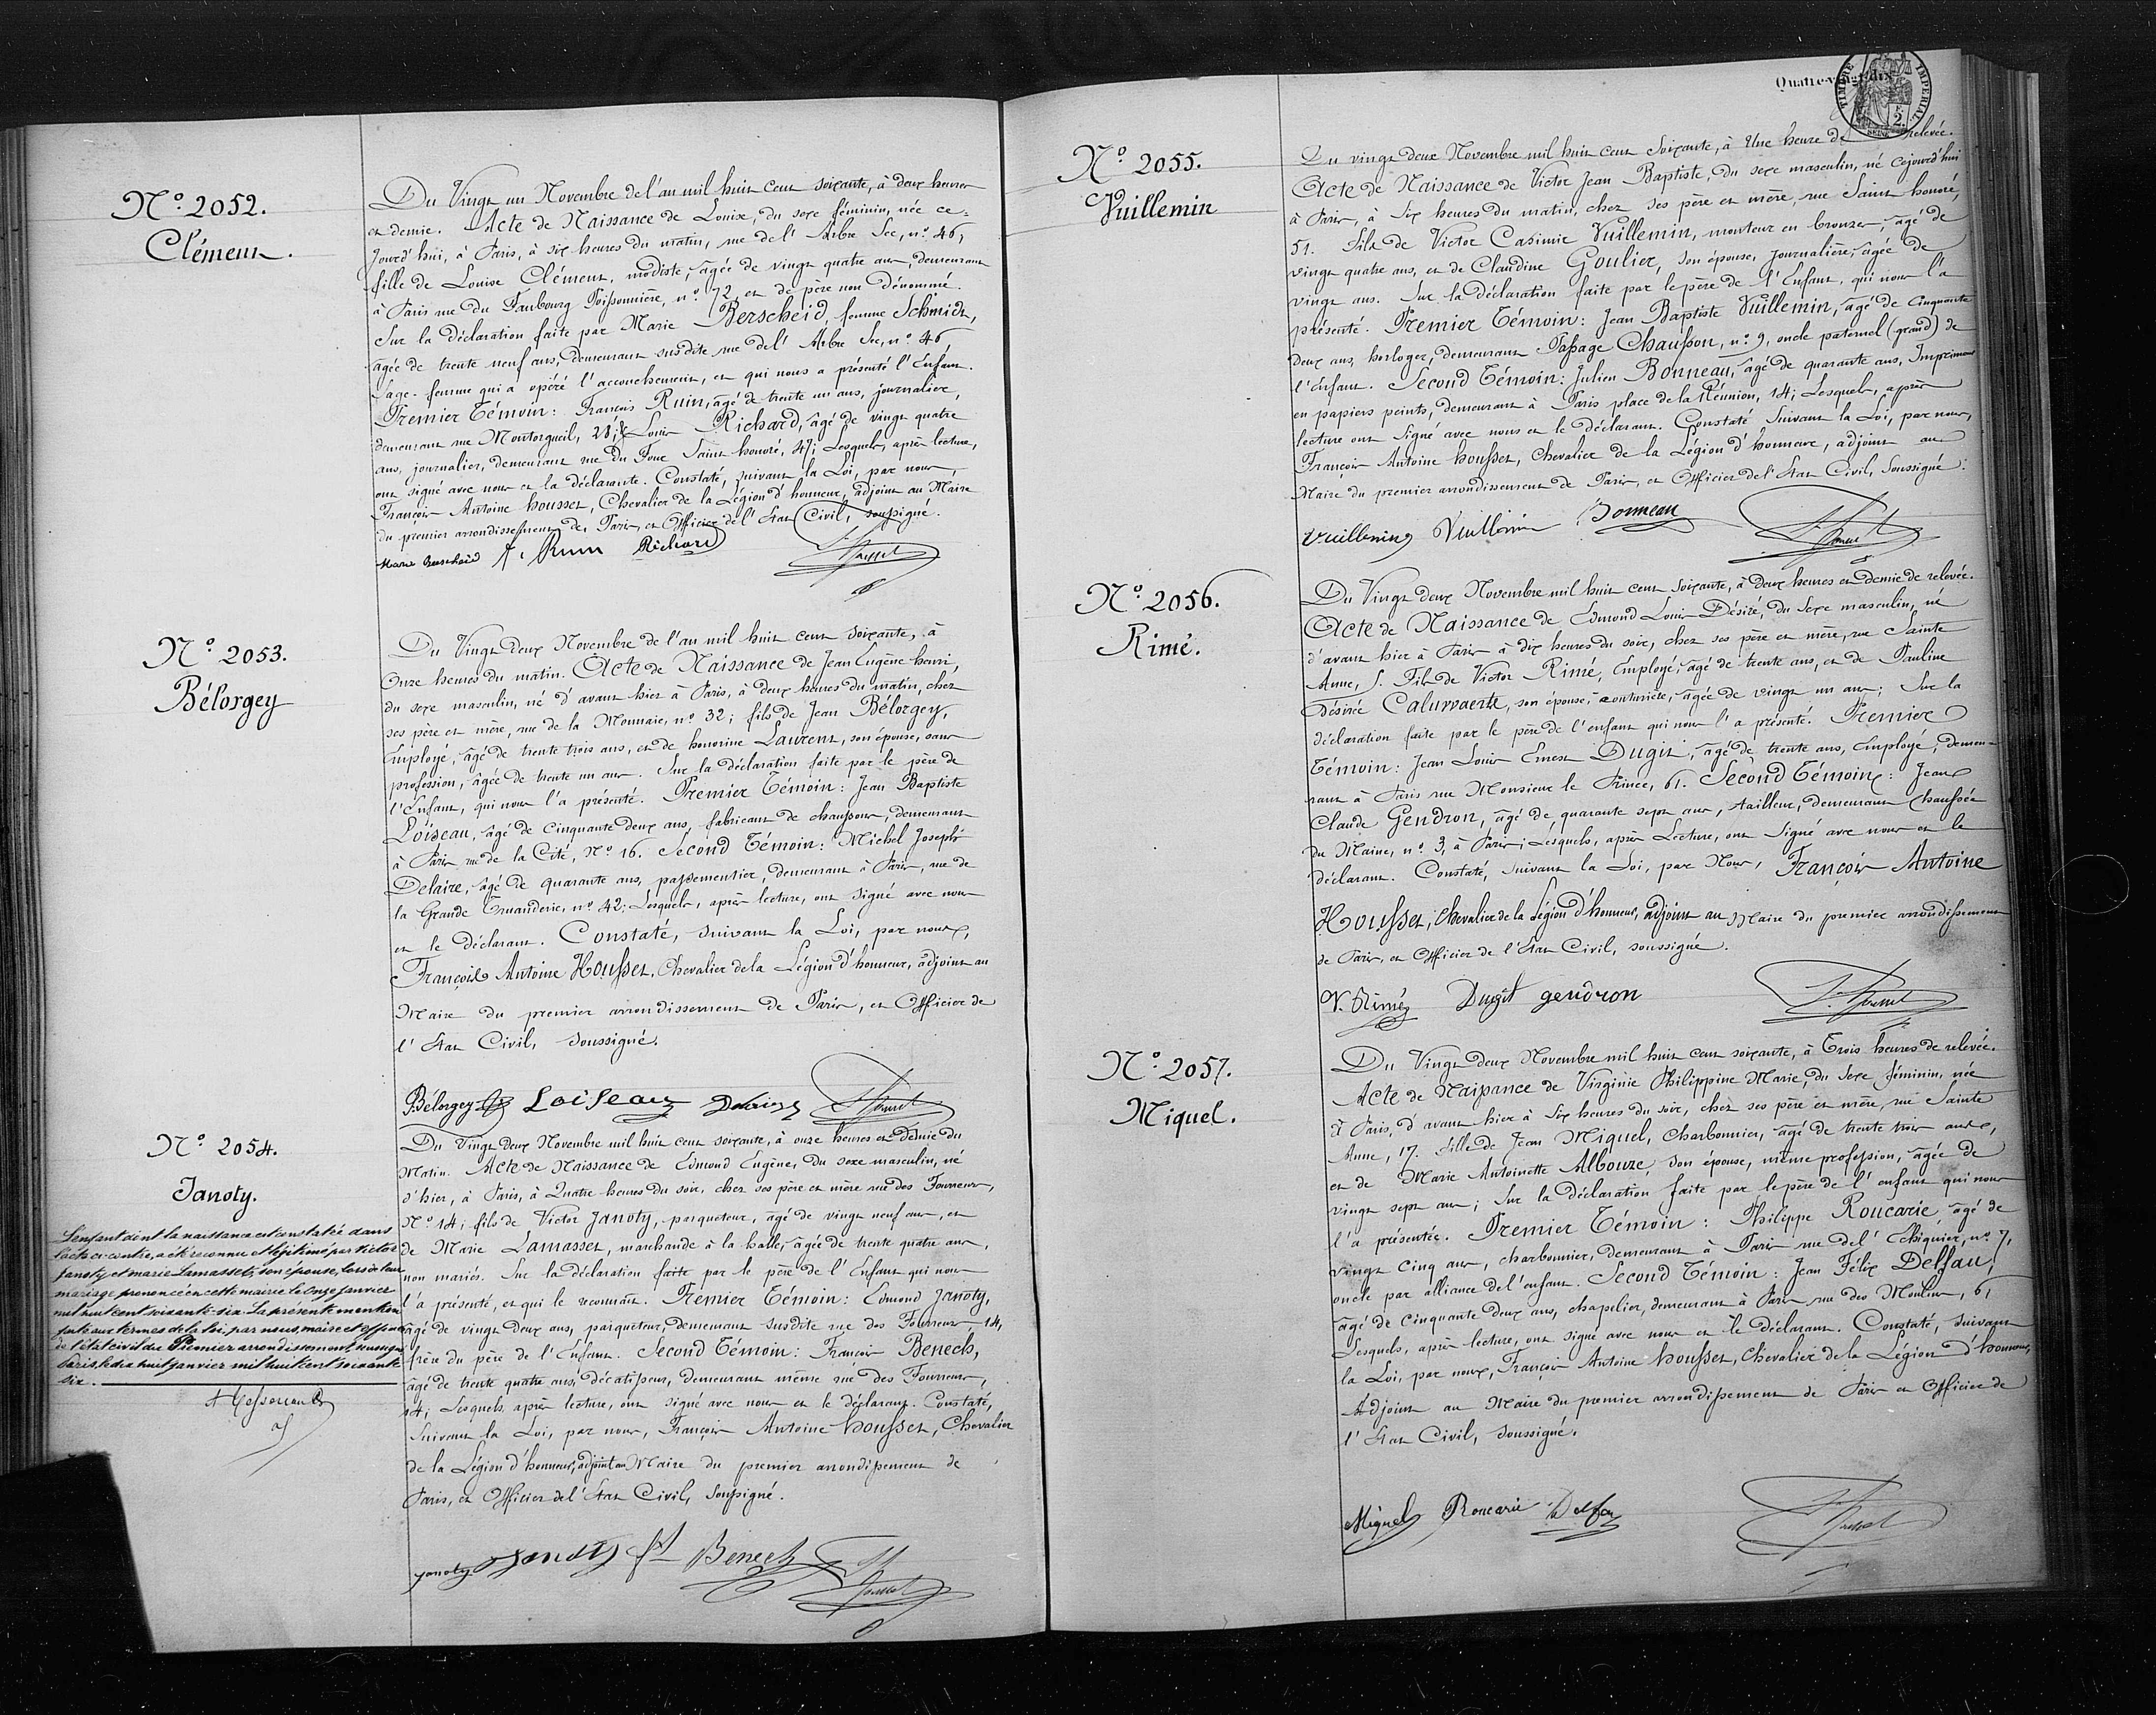 N.º 2052.
Clément.
Du Vingt un Novembre de l'an mil huit cent soixante, à deux heures
et demie. Acte de Naissance de Louise, du sexe féminin, née ce=
jourd'hui, à Paris, à six heures du matin, rue de l'Arbre Sec, n.º 46,
fille de Louise Clément, modiste, âgée de vingt quatre ans, demeurant
à Paris rue du Faubourg Poissonnière, n.º 72, et de père non dénommé.
Sur la déclaration faite par Marie Berscheid, femme Schmidt,
âgée de trente neuf ans, demeurant susdite rue de l'Arbre Sec, n.º 46,
Sage-femme qui a opéré l'accouchement, et qui nous a présenté l'Enfant.
Premier Témoin: François Ruin, âgé de trente un ans, journalier,
demeurant rue Montorgueil, 28; Louis Richard, âgé de vingt quatre
ans, journalier, demeurant rue du Four Saint honoré, 47; Lesquels, après lecture,
ont signé avec nous et la déclarante. Constaté, suivant la Loi, par nous,
François Antoine housset, Chevalier de la Légion d'honneur, adjoint au Maire
du premier arrondissement de Paris, et Officier de l'Etat Civil, soussigné.
Marie Berscheid Ruin Richard Housset
N.º 2053.
Bélorgey
Du Vingt deux Novembre de l'an mil huit cent soixante, à
Onze heures du matin. Acte de Naissance de Jean Eugène henri,
du sexe masculin, né d'avant hier à Paris, à deux heures du matin, chez
ses père et mère, rue de la Monnaie, n.º 32; fils de Jean Bélorgey,
Employé, âgé de trente trois ans, et de honorine Laurent, son épouse, sans
profession, âgée de trente un ans. Sur la déclaration faite par le père de
l'Enfant, qui nous l'a présenté. Premier Témoin: Jean Baptiste
Loiseau, âgé de cinquante deux ans, fabricant de chaussons, demeurant
à Paris rue de la Cité, N.º 16. Second Témoin: Michel Joseph
Delaire, âgé de quarante ans, passementier, demeurant à Paris, rue de
la Grande Truanderie, n.º 42; Lesquels, après lecture, ont signé avec nous
et le déclarant. Constaté, suivant la Loi, par nous,
François Antoine Housset, Chevalier de la Légion d'honneur, adjoint au
Maire du premier arrondissement de Paris, et Officier de
l'Etat Civil, soussigné.
Bélorgey Loiseau Delaire Housset
N.º 2054.
Janoty.
L'enfant dont la naissance est constatée dans
l'acte ci-contre, a été reconnu et légitimé par Victor
Janoty et marie Lamasset, son épouse, lors de leur
mariage prononcé en cette mairie le Onze janvier
mil huit cent soixante-six. La présente mention
faite aux termes de la loi, par nous, maire et officier
de l'état civil du Premier arrondissement, soussigné
Paris, le dix huit janvier mil huit cent soixante
six.
Du Vingt deux Novembre mil huit cent soixante, à onze heures et demie du
Matin. Acte de Naissance de Edmond Eugène, du sexe masculin, né
d'hier, à Paris, à Quatre heures du soir, chez ses père et mère rue des Fourreurs,
N.º 14; fils de Victor Janoty, parqueteur, âgé de vingt neuf ans, et
de Marie Lamasset, marchande à la halle, âgée de trente quatre ans,
non mariés. Sur la déclaration faite par le père de l'Enfant qui nous
l'a présenté, et qui le reconnaît. Premier Témoin: Edmond Janoty,
âgé de vingt deux ans, parqueteur, demeurant susdite rue des Fourreurs, 14,
frère du père de l'Enfant. Second Témoin: François Benech,
âgé de trente quatre ans, décatisseur, demeurant même rue des Fourreurs,
14; Lesquels après lecture, ont signé avec nous et le déclarant. Constaté,
Suivant la Loi, par nous, François Antoine housset, Chevalier
de la Légion d'honneur, adjoint au Maire du premier arrondissement de
Paris, et Officier de l'Etat Civil, soussigné.
Janoty Janoty Benech Housset
Quatre-vingt-dix
TIMBRE IMPERIAL
2.
SEINE
N.º 2055.
Vuillemin
Du vingt deux Novembre mil huit cent soixante, à Une heure de relevée.
Acte de Naissance de Victor Jean Baptiste, du sexe masculin, né cejourd'hui
à Paris, à Six heures du matin, chez ses père et mère, rue Saint honoré,
51. Fils de Victor Casimir Vuillemin, monteur en bronzes, âgé de
vingt quatre ans, et de Claudine Goulier, son épouse, journalière, âgée de
vingt ans. Sur la déclaration faite par le père de l'Enfant, qui nous l'a
présenté. Premier Témoin: Jean Baptiste Vuillemin, âgé de Cinquante
deux ans, horloger, demeurant Passage Chausson, n.º 9, oncle paternel (grand) de
l'Enfant. Second Témoin: Julien Bonneau, âgé de quarante ans, Imprimeur
en papiers peints, demeurant à Paris place de la Réunion, 14; Lesquels, après
lecture ont signé avec nous et le déclarant. Constaté Suivant la Loi, par nous,
François Antoine housset, Chevalier de la Légion d'honneur, adjoint au
Maire du premier arrondissement de Paris, et Officier de l'Etat Civil, soussigné.
Vuillemin Vuillemin Bonneau Housset
N.º 2056.
Rimé.
Du Vingt deux Novembre mil huit cent soixante, à deux heures et demie de relevée.
Acte de Naissance de Edmond Louis Désiré, du Sexe masculin, né
d'avant hier à Paris à dix heures du soir, chez ses père et mère, rue Sainte
Anne, 5. Fils de Victor Rimé, Employé, âgé de trente ans, et de Pauline
Désirée Caluwaerts, son épouse, couturière, âgée de vingt un ans; Sur la
déclaration faite par le père de l'enfant qui nous l'a présenté. Premier
Témoin: Jean Louis Ernest Dugit, âgé de trente ans, Employé, demeu=
rant à Paris rue Monsieur le Prince, 61. Second Témoin: Jean
Claude Gendron, âgé de quarante sept ans, tailleur, demeurant Chaussée
du Maine, n.º 3, à Paris; Lesquels, après Lecture, ont Signé avec nous et le
déclarant. Constaté, Suivant la Loi, par Nous, François Antoine
Housset, Chevalier de la Légion d'honneur, adjoint au Maire du premier arrondissement
de Paris, et Officier de l'Etat Civil, soussigné.
V. Rimé Dugit gendron Housset
N.º 2057.
Miquel.
Du Vingt deux Novembre mil huit cent soixante, à Trois heures de relevée.
Acte de Naissance de Virginie Philippine Marie, du Sexe féminin, née
à Paris, d'avant hier à Six heures du soir, chez ses père et mère, rue Sainte
Anne, 17. Fille de Jean Miquel, Charbonnier, âgé de trente trois ans,
et de Marie Antoinette Albouze, son épouse, même profession, âgée de
vingt sept ans; Sur la déclaration faite par le père de l'enfant qui nous
l'a présentée. Premier Témoin: Philippe Roucarie, âgé de
vingt cinq ans, charbonnier, demeurant à Paris rue de l'Echiquier, n.º 7,
oncle par alliance de l'enfant. Second Témoin: Jean Félix Delfau,
âgé de cinquante deux ans, chapelier, demeurant à Paris rue des Moulins, 6;
Lesquels, après lecture, ont signé avec nous et le déclarant. Constaté, suivant
la Loi, par nous, François Antoine housset, Chevalier de la Légion d'honneur,
Adjoint au Maire du premier arrondissement de Paris et Officier de
l'Etat Civil, soussigné.
Miquel Roucarie Delfau Housset